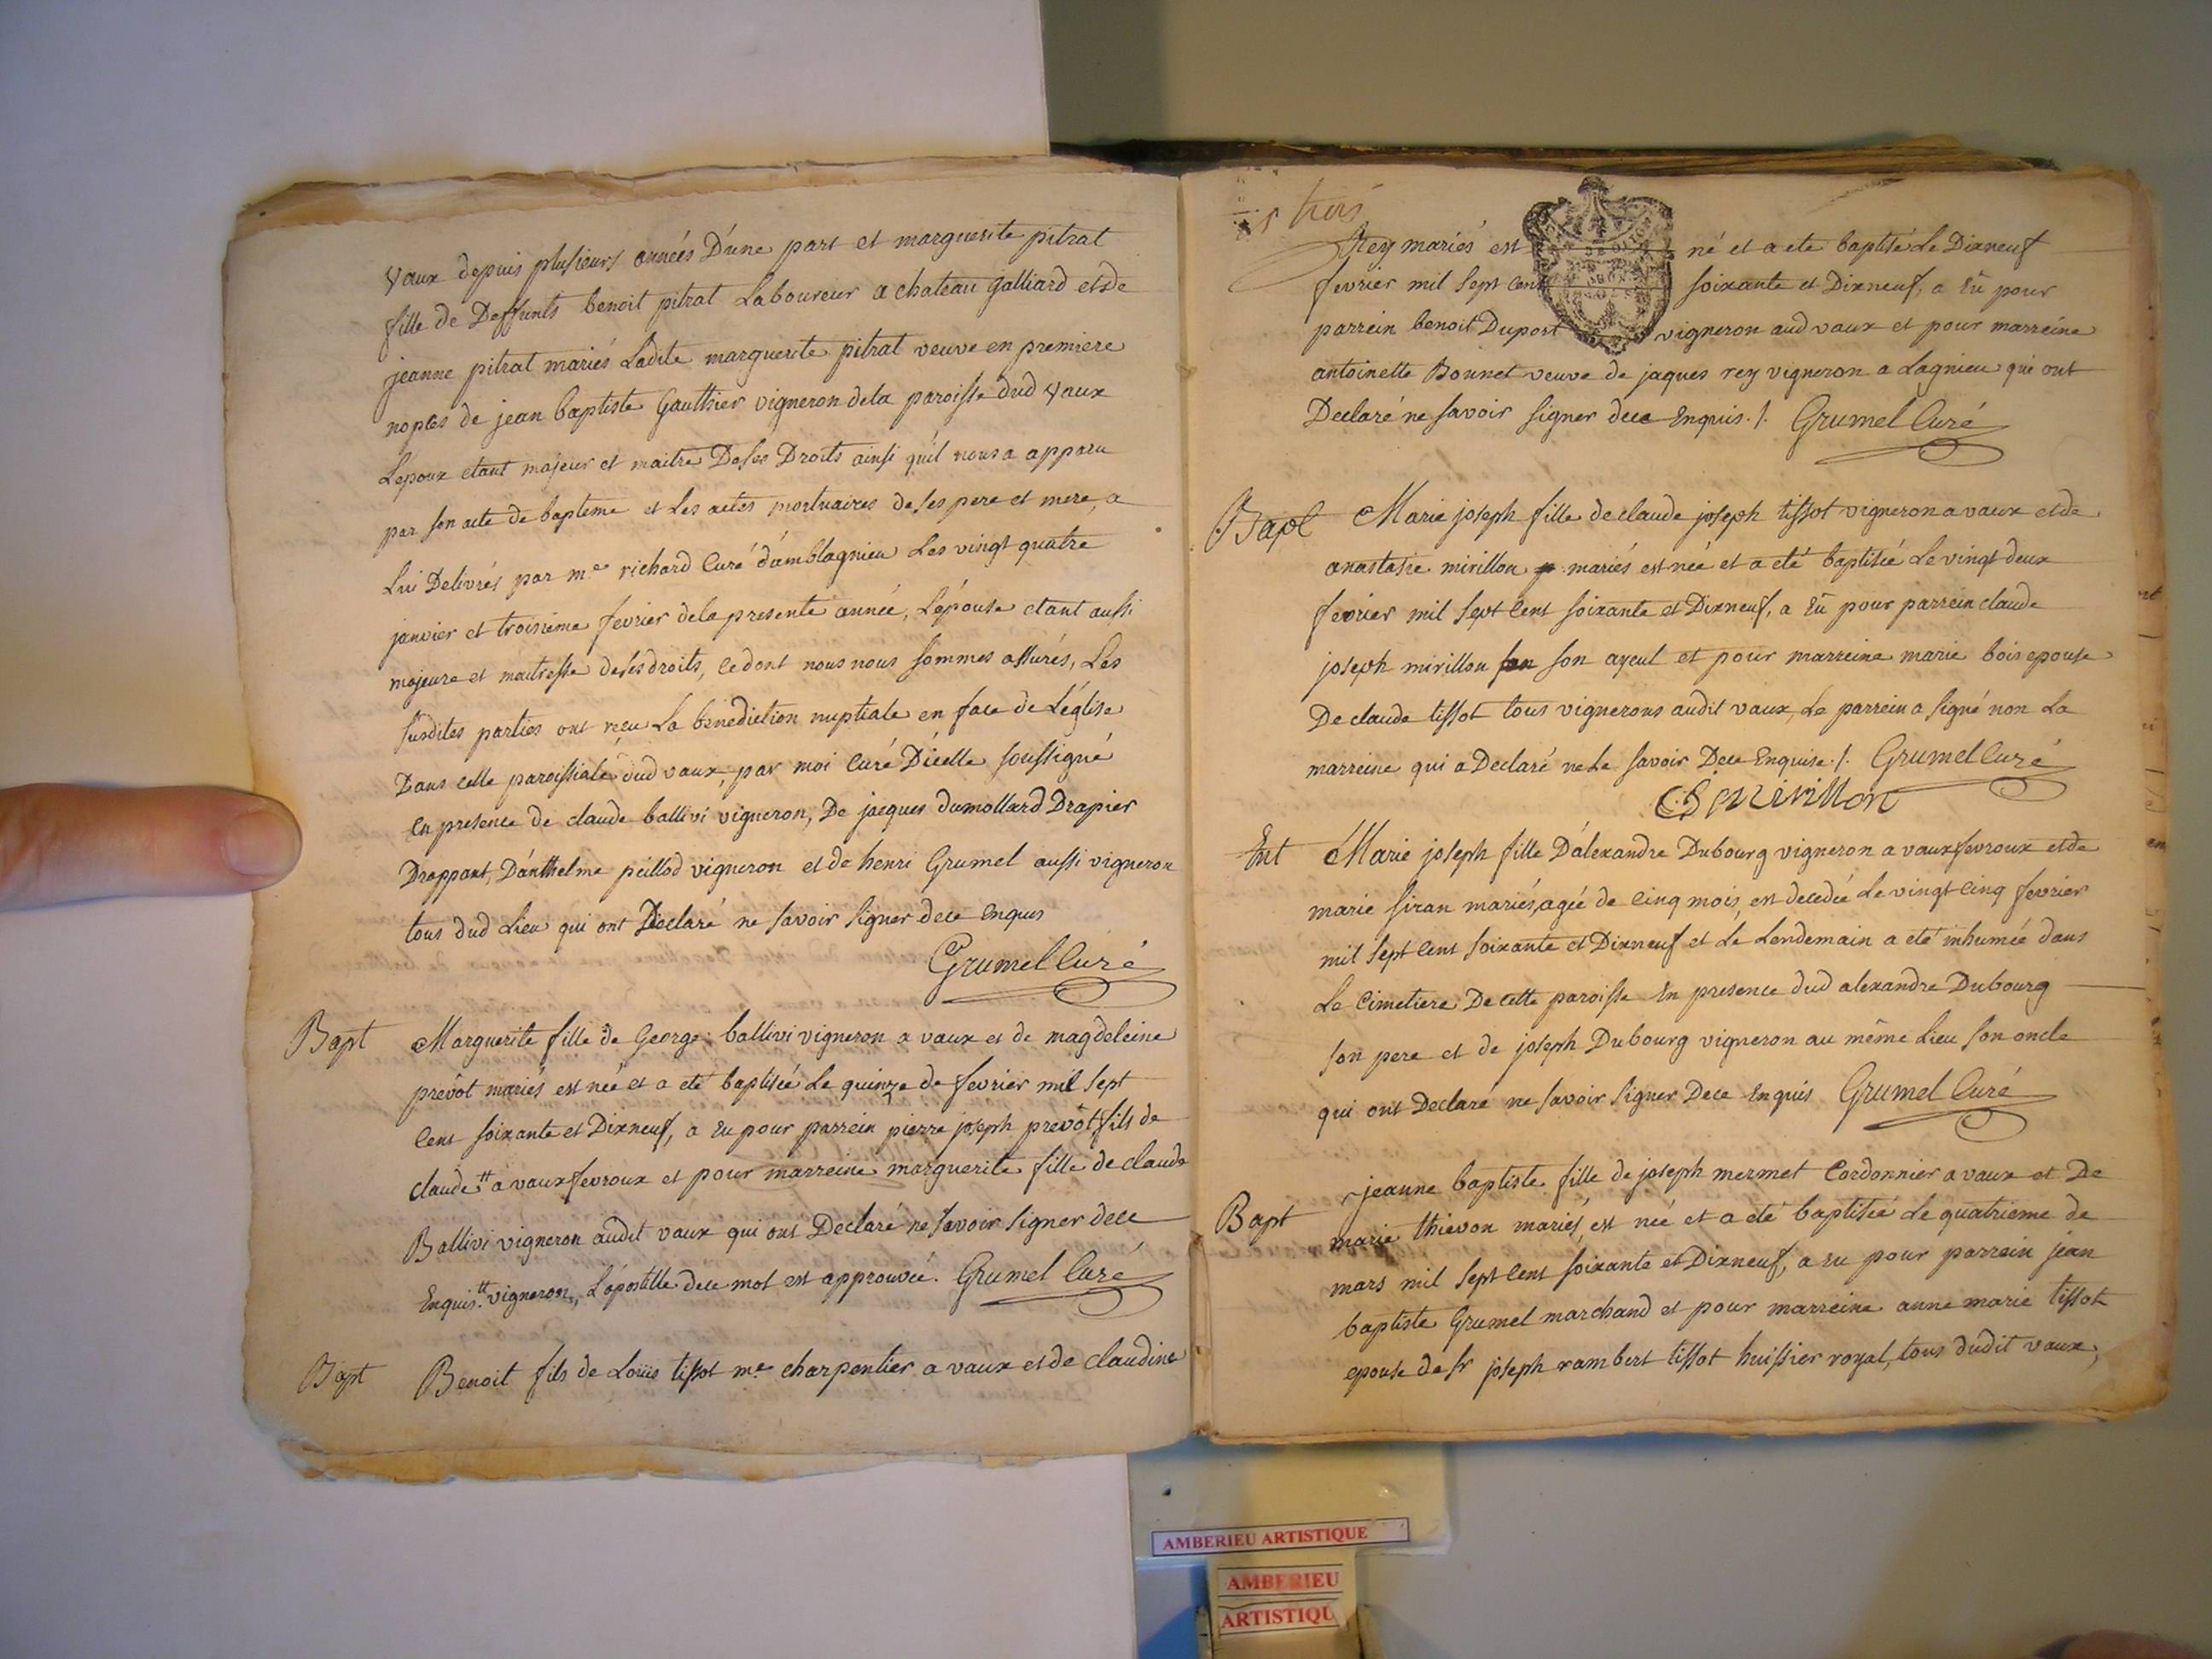 vaux depuis plusieurs années D'une part et marguerite pitrat
fille de Deffunts benoit pitrat Laboureur a chateau galliard et de
jeanne pitrat mariés Ladite marguerite pitrat veuve en premiere
noptes de jean baptiste gauthier vigneron de la paroisse dud vaux
L'epoux etant majeur et maitre De ses Droits ainsi qu'il nous a apparu
par son acte de bapteme et Les actes mortuaires de ses pere et mere, a
Lui Delivrés par me richard Curé d'amblagnieu Les vingt quatre
janvier et troisieme fevrier de la presente année, L'épouse etant aussi
majeure et maitresse de ses droits, ce dont nous nous sommes assurés, Les
susdites parties ont reçu La benediction nuptiale en face de L'église
Dans celle paroissiale dud vaux, par moi Curé D'icelle soussigné
En presence de claude ballivi vigneron, De jacques dumollard Drapier
Drappant, D'anthelme peillod vigneron et de henri Grumel aussi vigneron
tous dud Lieu qui ont Declaré ne savoir signer de ce enquis
Grumel Curé
Bapt Marguerite fille de George ballivi vigneron a vaux et de magdeleine
prevôt mariés est née et a eté baptisée Le quinze de fevrier mil sept
Cent soixante et Dixneuf, a Eu pour parrein pierre joseph prevôt fils de
claude tt a vauxfevroux et pour marreine marguerite fille de claude
Ballivi vigneron audit vaux qui ont Declaré ne savoir signer de ce
Enquis. tt vigneron, L'apostille de ce mot est approuvée. Grumel Curé
Bapt Benoit fils de Loüis tissot me charpentier a vaux et de claudine
trois
Rey mariés est né et a eté baptisé Le Dixneuf
fevrier mil sept cent soixante et Dixneuf, a Eû pour
parrein benoit Duport vigneron aud vaux et pour marreine
antoinette Bonnet veuve de jaques rey vigneron a Lagnieu qui ont
Declaré ne savoir signer de ce Enquis ./. Grumel Curé
Bapt Marie joseph fille de claude joseph tissot vigneron a vaux et de
anastasie mirillon mariés est née et a eté baptisée Le vingt deux
fevrier mil sept cent soixante et Dixneuf, a Eû pour parrein claude
joseph mirillon son ayeul et pour marreine marie bois epouse
De claude tissot tous vignerons audit vaux, Le parrein a signé non La
marreine qui a Declaré ne Le savoir De ce Enquise ./. Grumel Curé
Mirillon
Ent Marie joseph fille D'alexandre Dubourg vigneron a vauxfevroux et de
marie siran mariés, agée de Cinq mois, est decedée Le vingt Cinq fevrier
mil sept Cent soixante et Dixneuf et Le Lendemain a eté inhumée dans
Le Cimetiere De cette paroisse En presence dud alexandre Dubourg
son pere et de joseph Dubourg vigneron au même Lieu son oncle
qui ont Declaré ne savoir signer De ce Enquis Grumel Curé
Bapt jeanne baptiste fille de joseph mermet Cordonnier a vaux et De
marie thievon mariés, est née et a eté baptisée Le quatrieme de
mars mil sept Cent soixante et Dixneuf, a Eu pour parrein jean
baptiste Grumel marchand et pour marreine anne marie tissot
epouse de sr joseph rambert tissot huissier royal, tous dudit vaux,
AMBERIEU ARTISTIQUE
AMBERIEU
ARTISTIQU